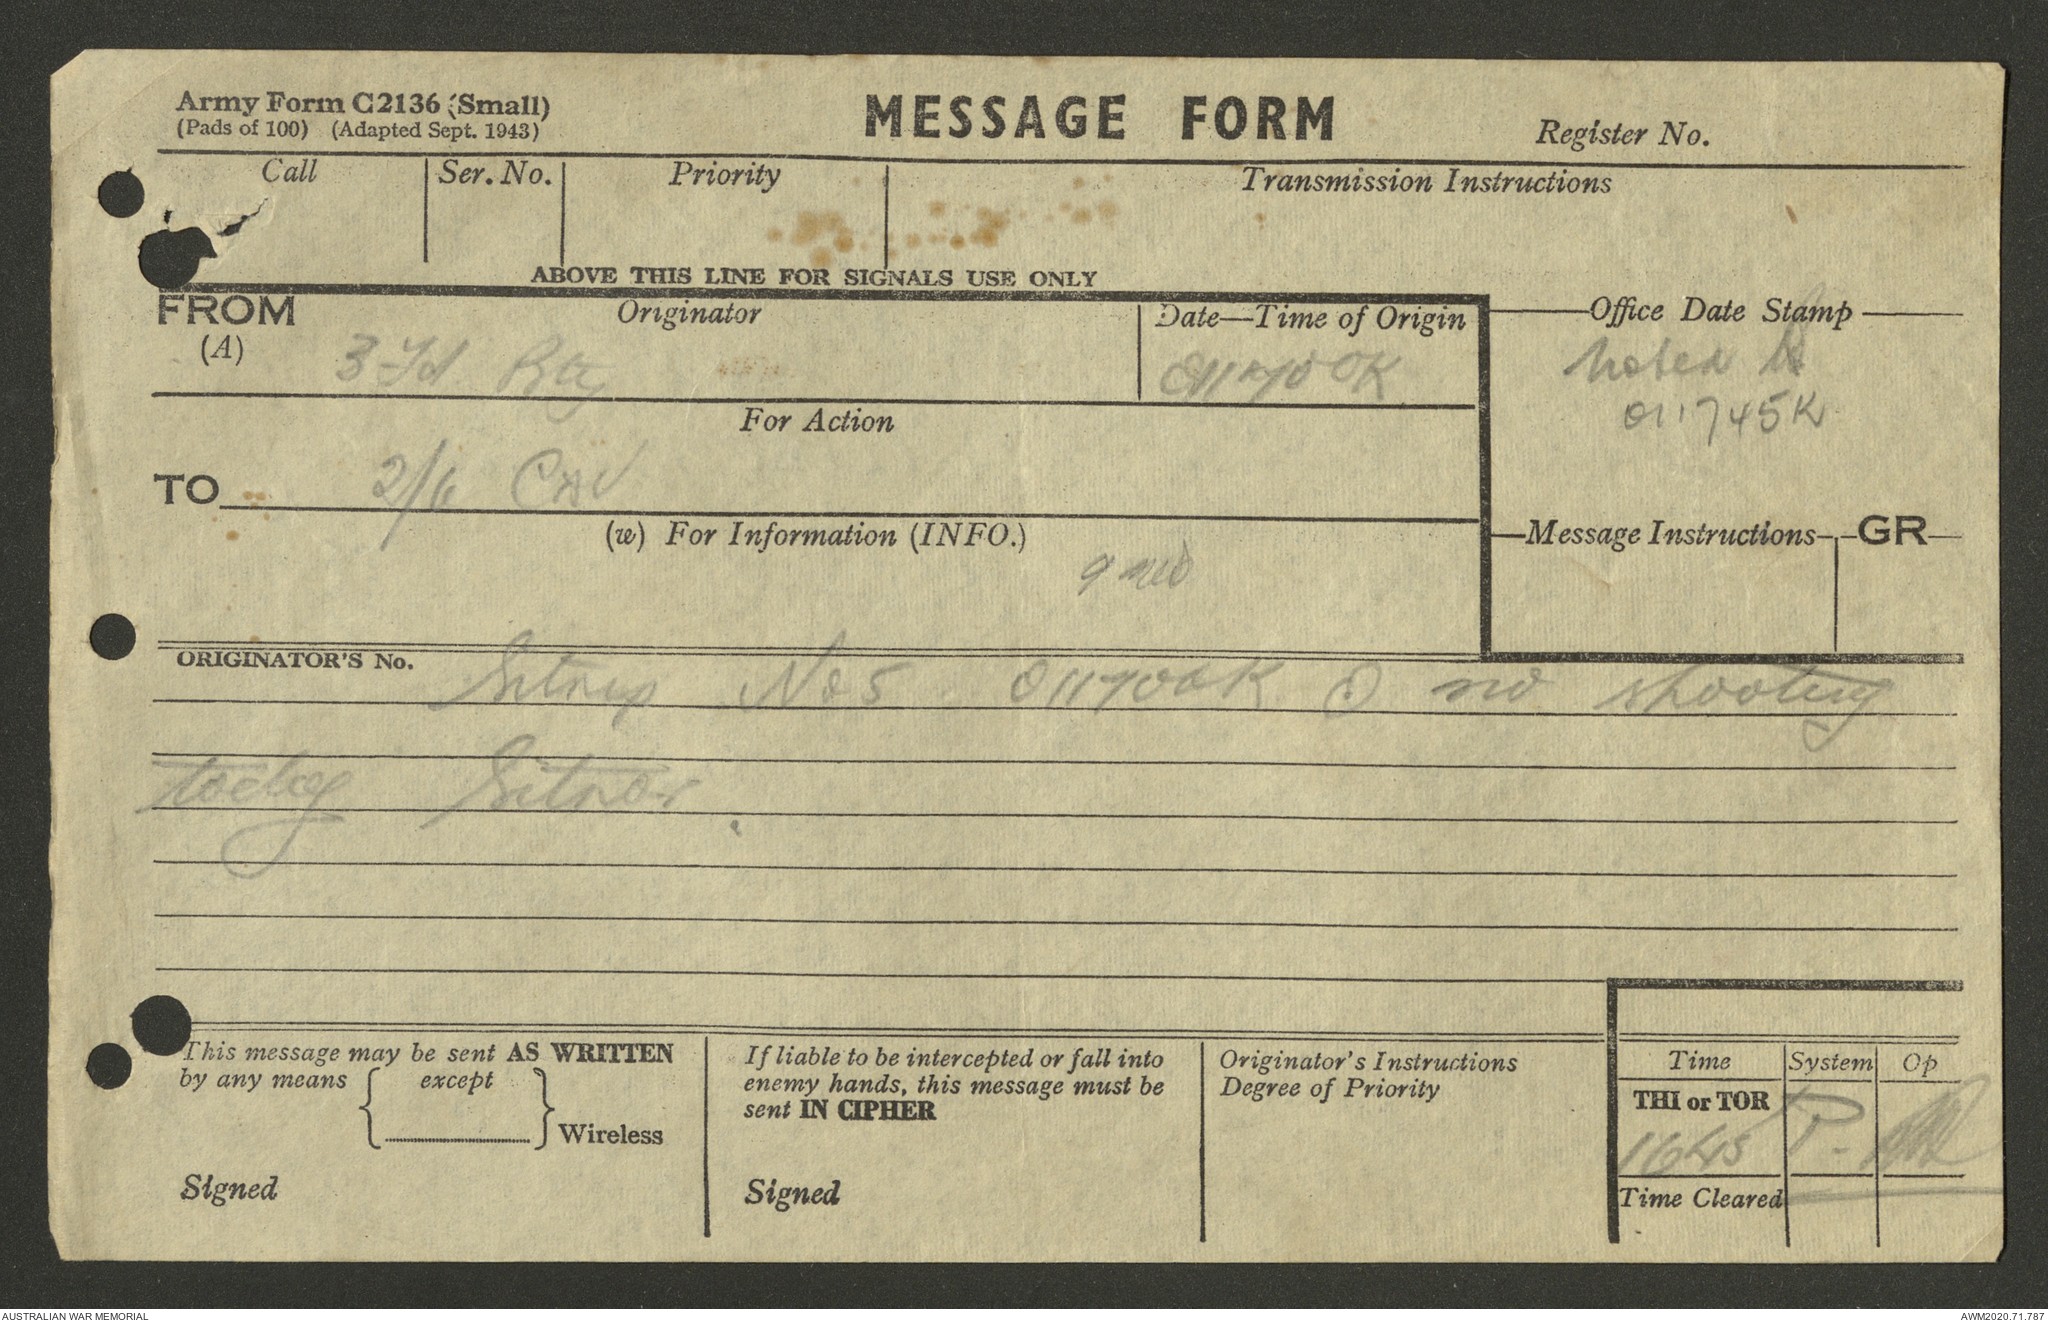 Army Form C2136 (Small)
(Pads of 100) (Adapted Sept. 1943)
MESSAGE FORM
Register No.
Call
Ser. No.
Priority
Transmission Instructions
ABOVE THIS LINE FOR SIGNALS USE ONLY
FROM
(A)
Originator
3 Fd Bty
Date—Time of Origin
011700K
Office Date Stamp
Noted
011745K
For Action
TO
2/6 CAV
(w) For Information (INFO.)
Message Instructions
GR
ORIGINATOR'S No.
Sitrep No 5 011700K O no shooting
today
This message may be sent AS WRITTEN
by any means { except } Wireless
Signed
If liable to be intercepted or fall into
enemy hands, this message must be
sent IN CIPHER
Signed
Originator's Instructions
Degree of Priority
Time
System
Op
THI or TOR
1645
P.
Time Cleared
AUSTRALIAN WAR MEMORIAL
AWM2020.71.787